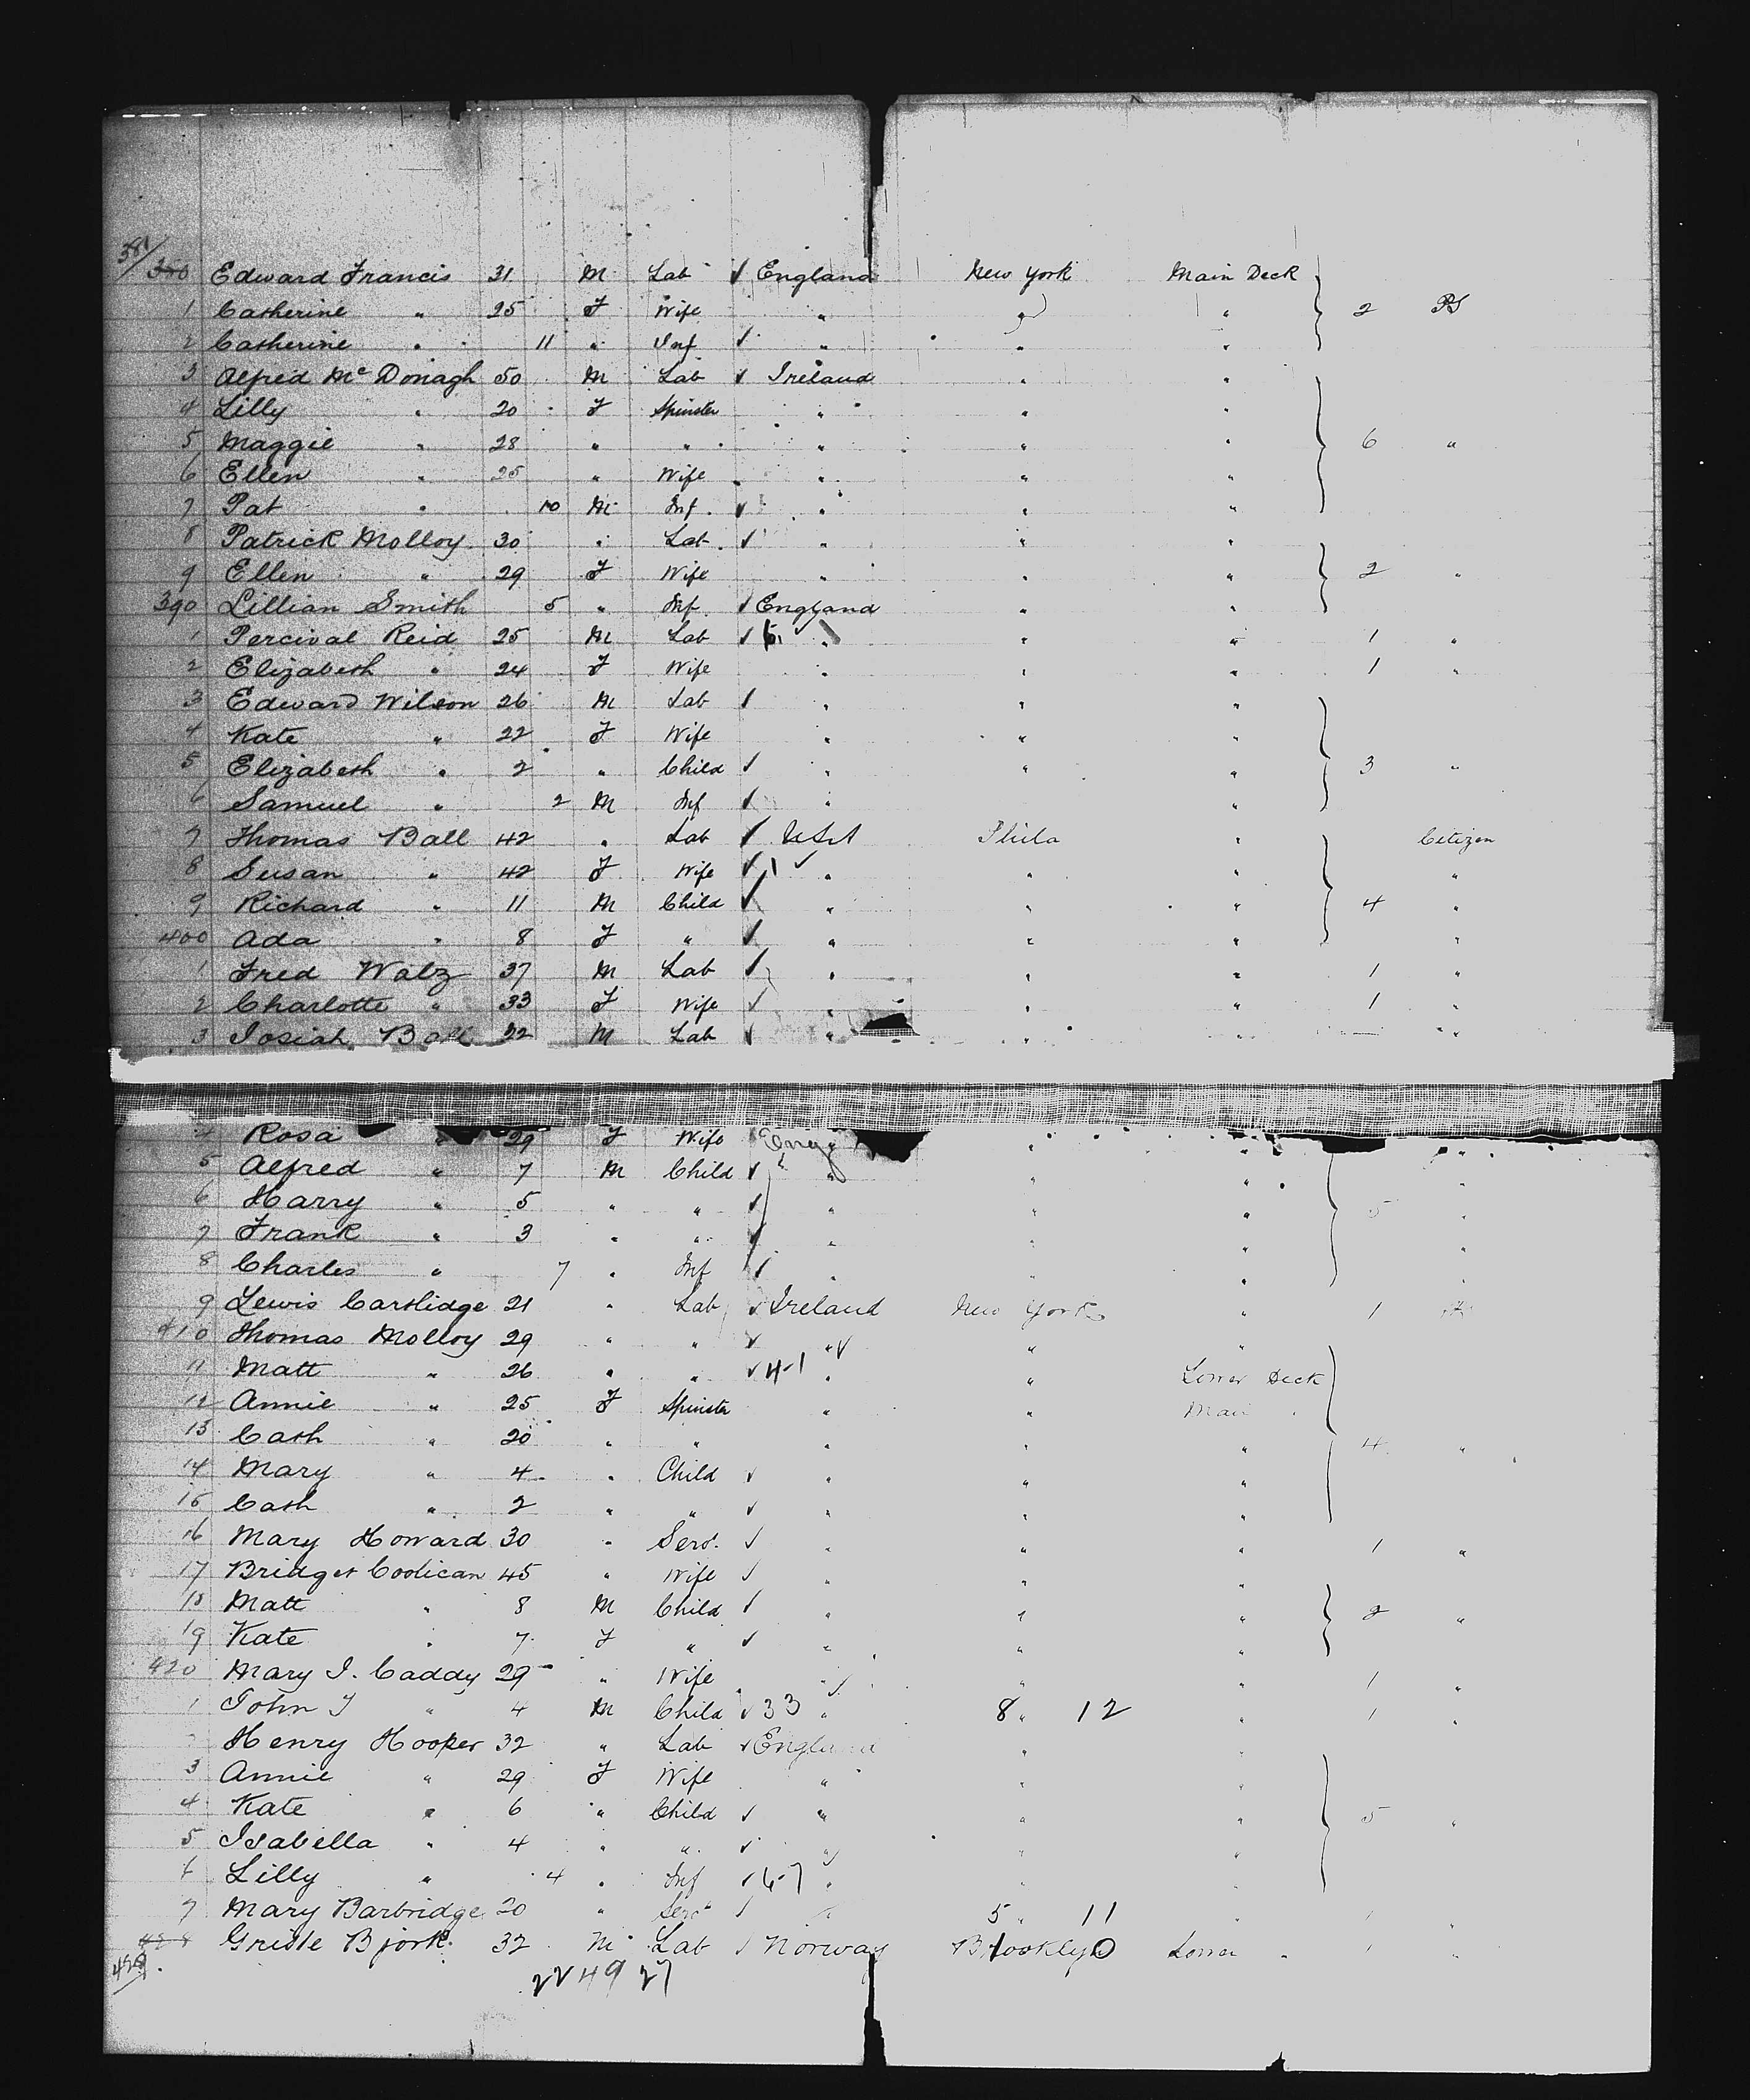 381/
380 Edward Francis 31 M Lab ✓ England New York Main Deck
1 Catherine " 25 F Wife " " " 2 PS
2 Catherine " 11 " Inf ✓ " " "
3 Alfred McDonagh 50 M Lab ✓ Ireland " "
4 Lilly " 20 F Spinster " " "
5 Maggie " 28 " " " " " 6 "
6 Ellen " 25 " Wife " " "
7 Pat " 10 M Inf. ✓ " " "
8 Patrick Molloy 30 " Lab. ✓ " " "
9 Ellen " 29 F Wife " " " 2 "
390 Lillian Smith 5 " Inf. ✓ England " "
1 Percival Reid 25 M Lab ✓ " " " 1 "
2 Elizabeth " 24 F Wife " " " 1 "
3 Edward Wilson 26 M Lab ✓ " " "
4 Kate " 22 F Wife " " "
5 Elizabeth " 2 " Child ✓ " " " 3 "
6 Samuel " 2 M Inf ✓ " "
7 Thomas Ball 42 " Lab ✓ USA Phila " Citizen
8 Susan " 42 F Wife ✓ 1 ✓ " " " "
9 Richard " 11 M Child ✓ " " " 4 "
400 Ada " 8 F " ✓ " " " "
1 Fred Walz 37 M Lab ✓ " " " 1 "
2 Charlotte " 33 F Wife ✓ " " " 1 "
3 Josiah Ball 22 M Lab ✓ " " " "
4 Rosa " 29 F Wife Eng " " "
5 Alfred " 7 M Child ✓ " " " "
6 Harry " 5 " " ✓ " " " 5 "
7 Frank " 3 " " ✓ " " " "
8 Charles " 7 " Inf ✓ " " " "
9 Lewis Cartlidge 21 " Lab ✓ Ireland New York " 1
410 Thomas Molloy 29 " " ✓ " ✓ " "
11 Matt " 26 " " ✓ 4-1 " " Lower Deck
12 Annie " 25 F Spinster " " Main "
13 Cath " 20 " " " " " 4 "
14 Mary " 4 " Child ✓ " " "
15 Cath " 2 " " ✓ " " "
16 Mary Howard 30 " Serv. ✓ " " " 1 "
17 Bridget Coolican 45 " Wife ✓ " " "
18 Matt " 8 M Child ✓ " " " 2 "
19 Kate " 7 F " ✓ " " "
420 Mary J. Caddy 29 " Wife " ✓ " " 1 "
1 John J " 4 M Child ✓ 33 " 8 " 12 " 1 "
Henry Hooper 32 " Lab ✓ England " "
3 Annie " 29 F Wife " " "
4 Kate " 6 " Child ✓ " " " 5 "
5 Isabella " 4 " " ✓ " " "
6 Lilly " 4 " Inf ✓ 6-7 " " "
7 Mary Barbridge 20 " Serv ✓ " 5 " 11 " 1 "
428 Gridle Bjork 32 M Lab ✓ Norway Brooklyn Lower " 1 "
429.
22 49 27